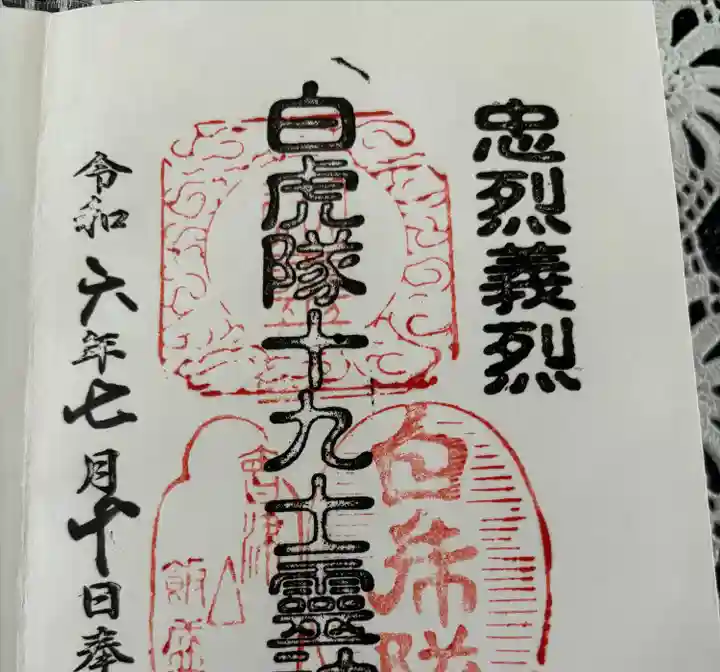 忠烈義烈
白虎隊十九士靈神
令和六年七月十日奉
白虎隊
會津
飯盛